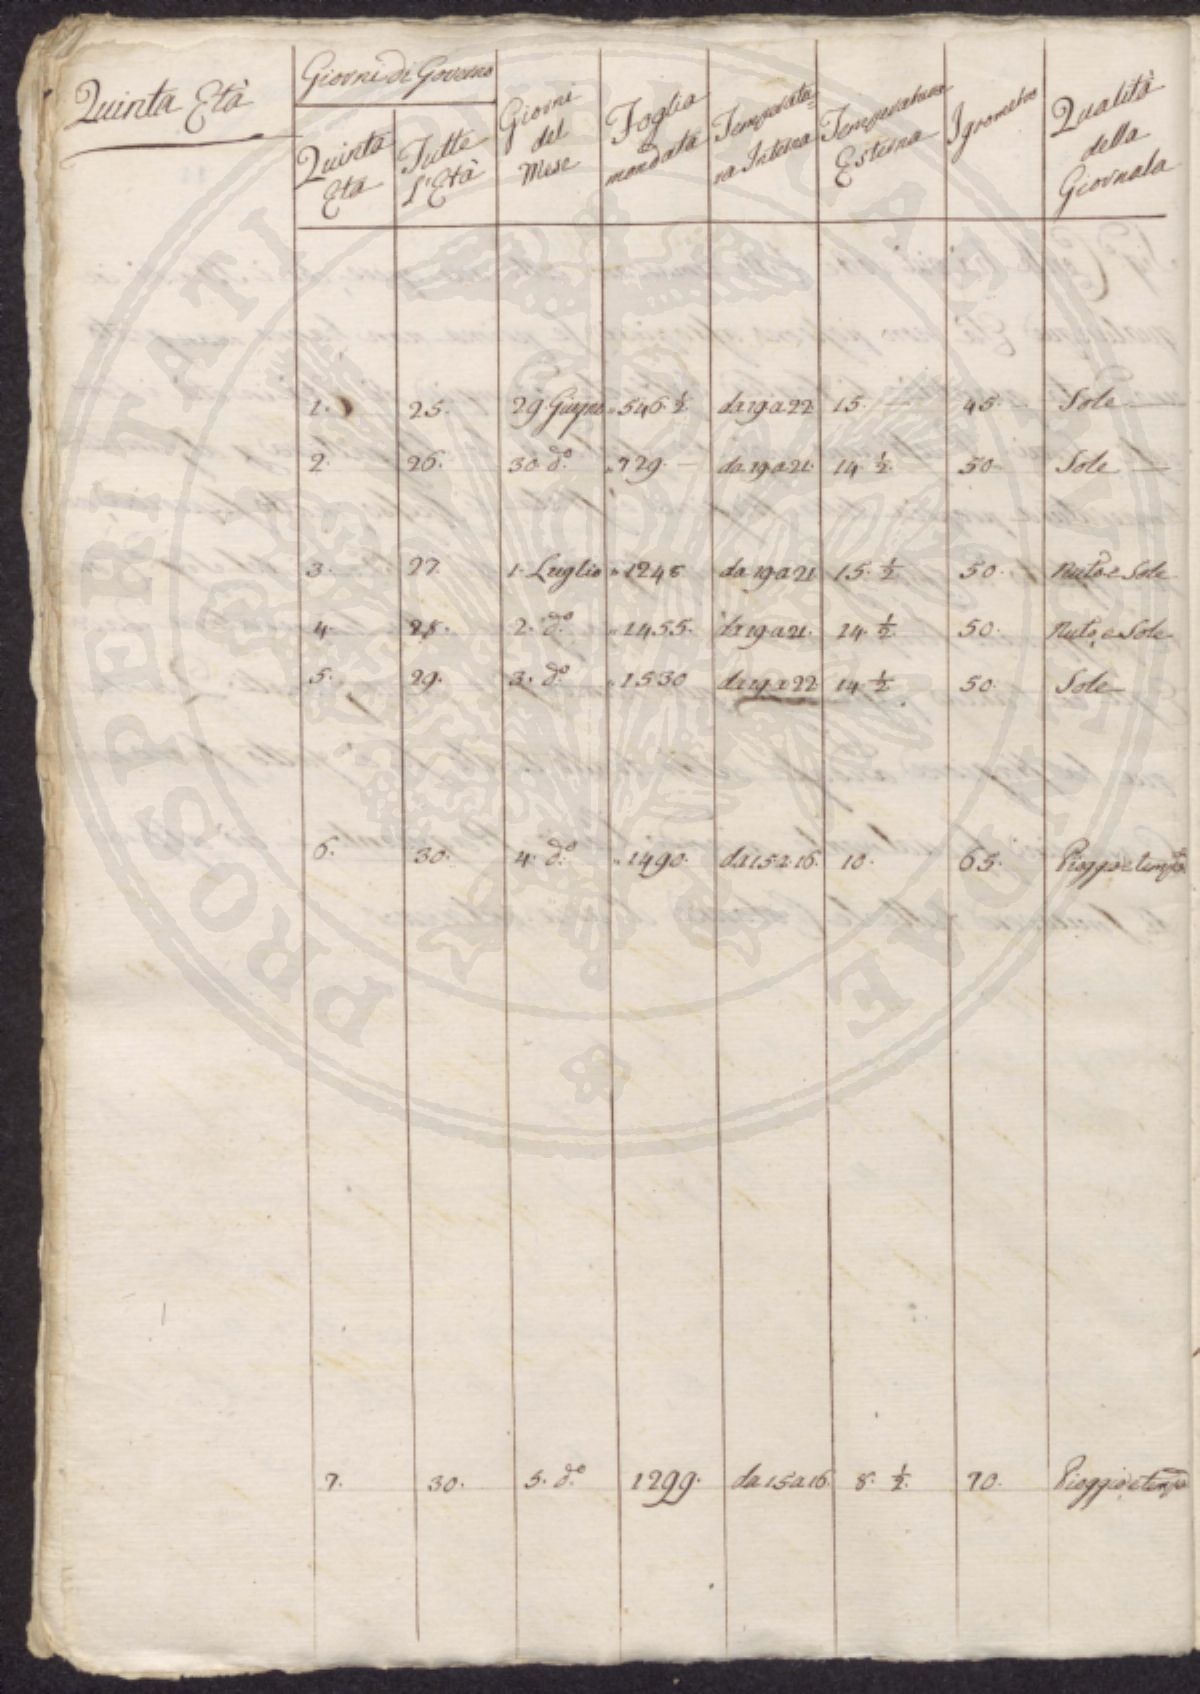 Quinta Età
Giorni di Governo
Quinta Età
Tutte l'Età
Giorni del Mese
Foglia mondata
Temperatura Interna
Temperatura Esterna
Igrometro
Qualità della Giornata
1. 25. 29 Giugno „ 546 ½ da 19 a 22 15. — 45. Sole —
2. 26. 30. d.º „ 729. — da 19 a 21. 14. ½ 50. Sole —
3. 27. 1. Luglio „ 1248 da 19 a 21 15. ½ 50. Nuto. e Sole
4. 28. 2. d.º „ 1455. da 19 a 21. 14 ½ 50. Nuto. e Sole
5. 29. 3. d.º „ 1530 da 19 a 22 14. ½ 50. Sole
6. 30. 4. d.º „ 1490. da 15 a 16. 10. 65. Pioggia e
7. 30. 5. d.º 1299. da 15 a 16. 8. ½ 70. Pioggia e
PROSPERITATI PUBLICAE AUGENDAE